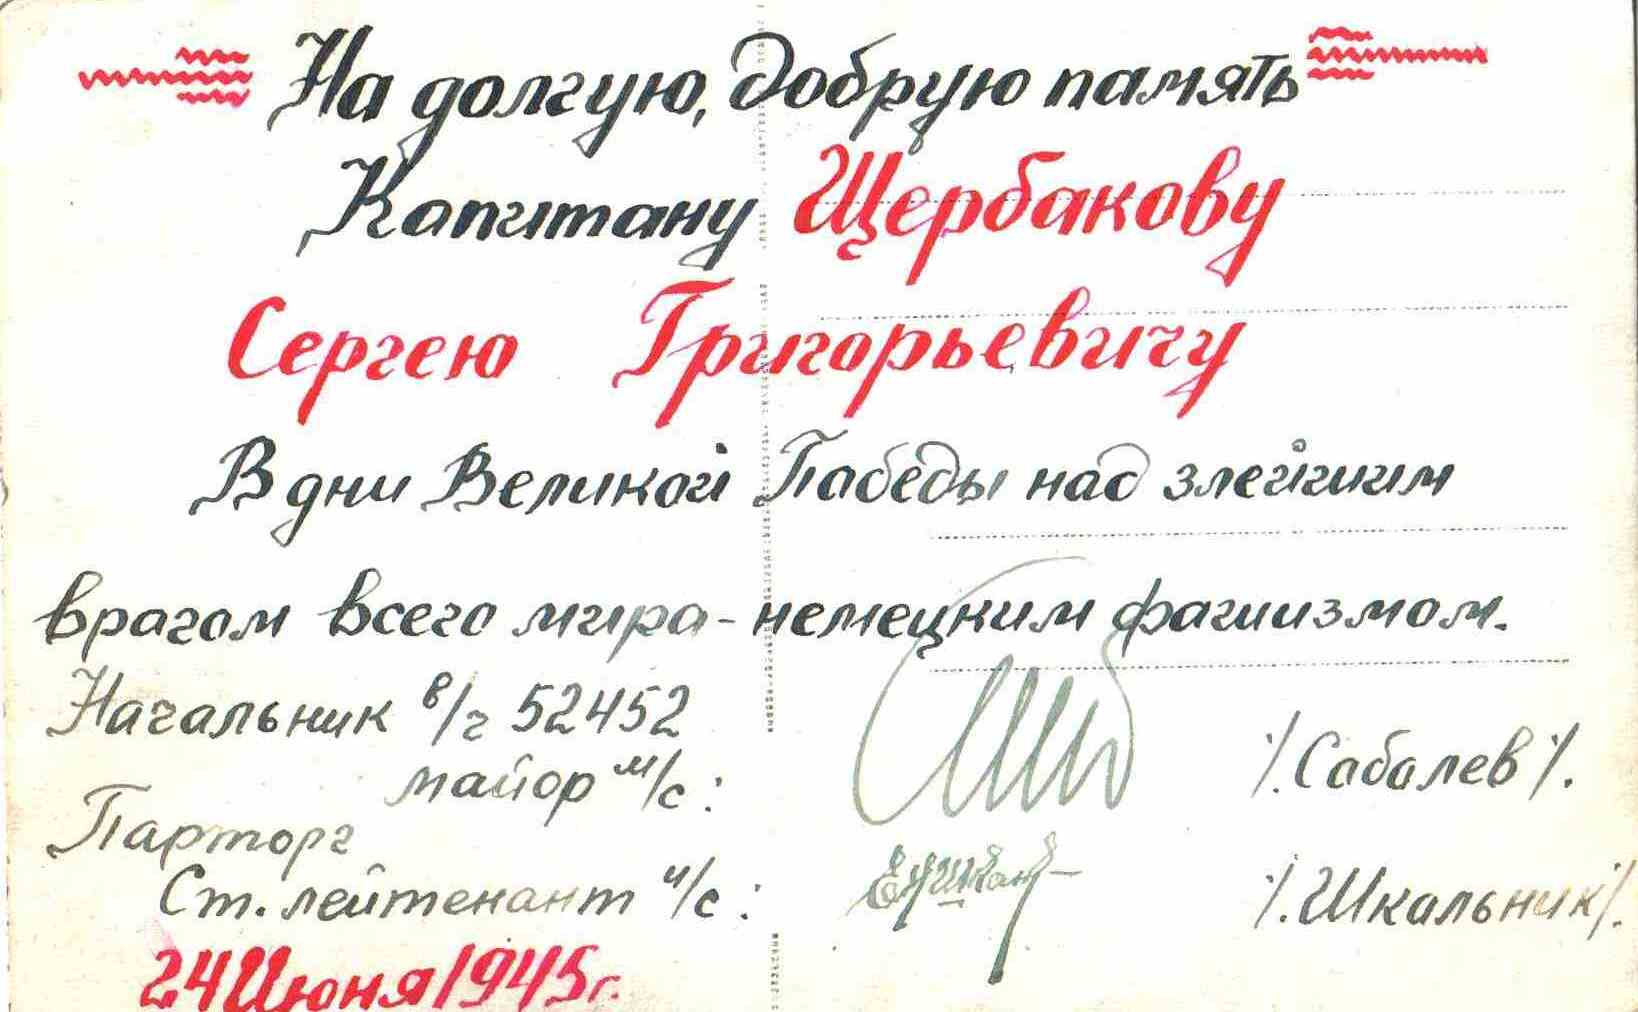 На долгую, добрую память
Капитану Щербакову
Сергею Григорьевичу
В дни Великой Победы над злейшим
врагом всего мира - немецким фашизмом.
Начальник в/ч 52452
майор м/с: /.Соболев/.
Парторг
Ст. лейтенант и/с: /.Школьник/.
24 Июня 1945 г.